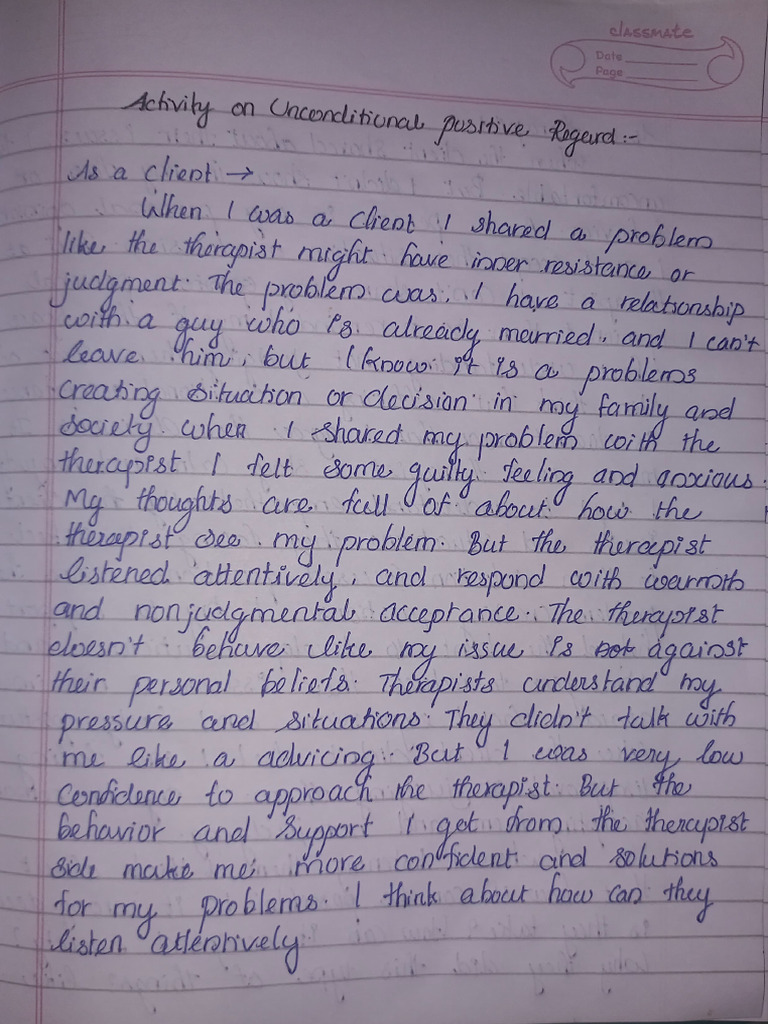 classmate
Date
Page
Activity on Unconditional positive Regard:-
As a client →
When I was a client I shared a problem
like the therapist might have inner resistance or
judgment. The problem was, I have a relationship
with a guy who is already married, and I can't
leave him, but I know it is a problems
creating situation or decision in my family and
society when I shared my problem with the
therapist I felt some guilty feeling and anxious.
My thoughts are full of about how the
therapist see my problem. But the therapist
listened attentively, and respond with warmth
and nonjudgmental acceptance. The therapist
doesn't behave like my issue is against
their personal beliefs. Therapists understand my
pressure and situations. They didn't talk with
me like a advicing. But I was very low
confidence to approach the therapist. But the
behavior and support I get from the therapist
side make me more confident and solutions
for my problems. I think about how can they
listen attentively